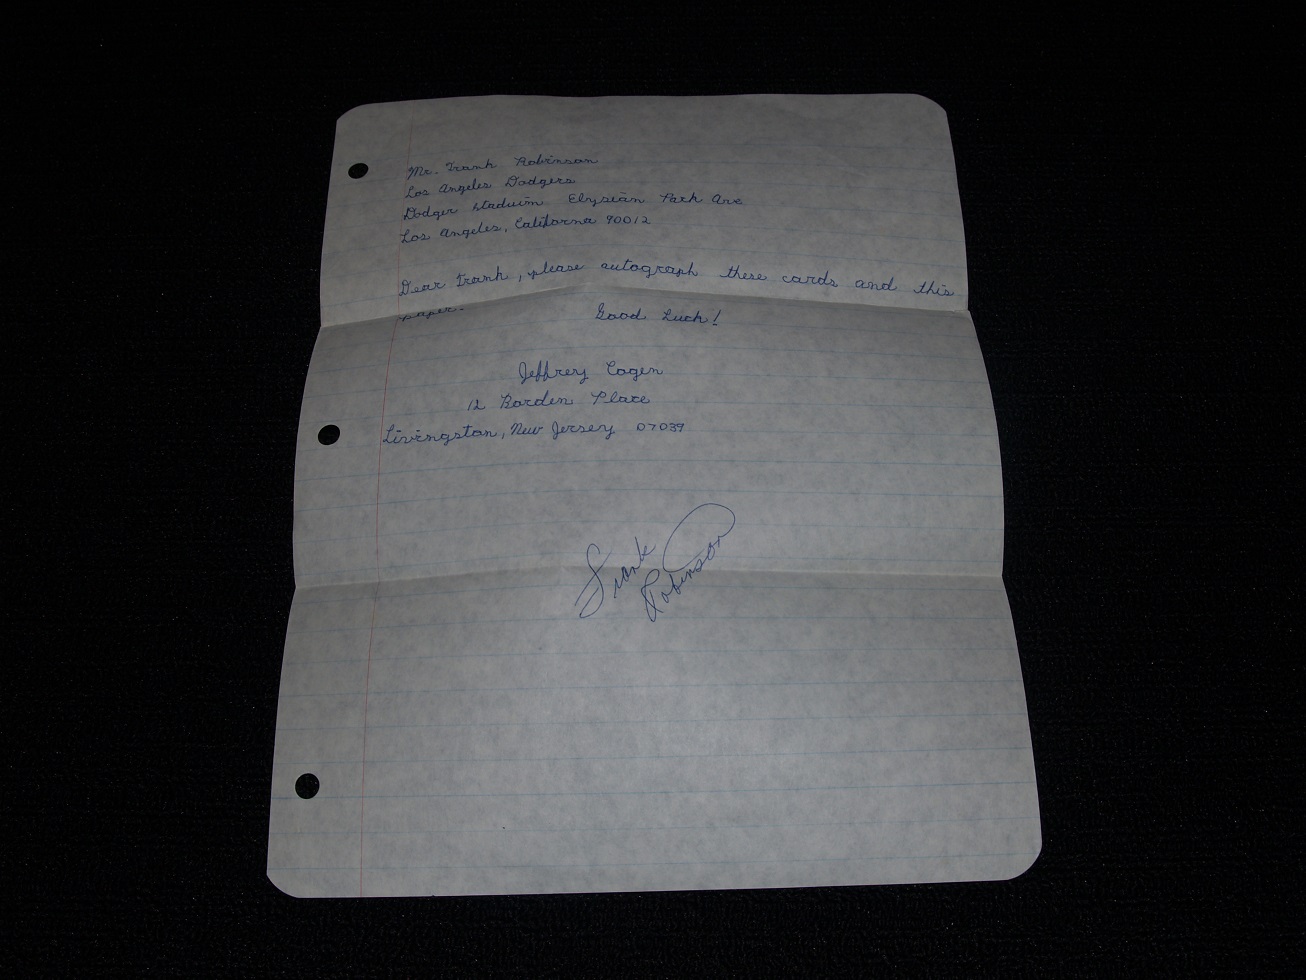 Mr. Frank Robinson
Los Angeles Dodgers
Dodger Staduim Elysian Park Ave
Los Angeles, California 90012
Dear Frank, please autograph these cards and this
paper.
Good Luck!
Jeffrey Cogen
12 Barden Place
Livingston, New Jersey 07039
Frank
Robinson